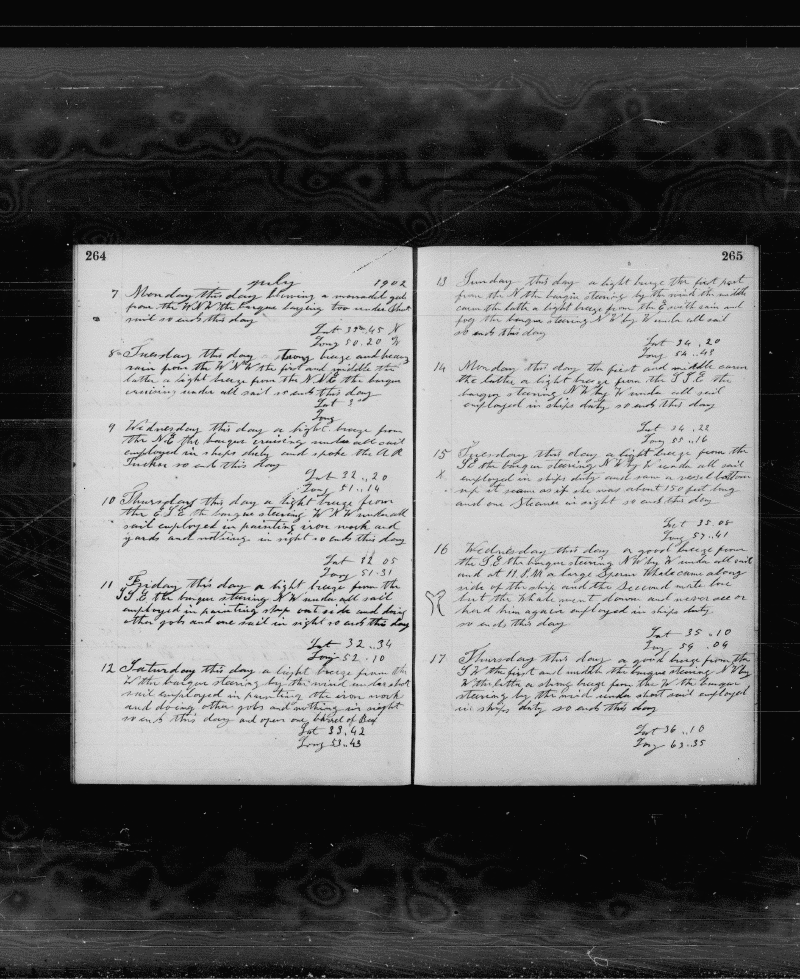 264
july 1902
7 Monday this day blowing a moderate gale
from the WNW the barque laying too under short
sail so ends this day
Lat 33 .. 45 N
Long 50 .. 20 W
8 Tuesday this day strong breeze and heavy
rain from the WNW the first and middle the
latter a light breeze from the NNE the barque
cruising under all sail so ends this day
Lat 3
Long
9 Wednesday this day a light breeze from
the N.E. the barque cruising under all sail
employed in ships duty and spoke the A R
Tucker so ends this day
Lat 32 .. 20
Long 51 .. 14
10 Thursday this day a light breeze from
the ESE the barque steering WNW under all
sail employed in painting iron work and
yards and nothing in sight so ends this day
Lat 32 05
Long 51 .. 31
11 Friday this day a light breeze from the
SSE the barque steering NW under all sail
employed in painting ship out side and doing
other gobs and one sail in sight so ends this day
Lat 32 .. 34
Long 52 .. 10
12 Saturday this day a light breeze from the
W the barque steering by the wind under short
sail employed in painting the iron work
and doing other gobs and nothing in sight
so ends this day and open one barrel of Beef
Lat 33 .. 42
Long 53 .. 43
265
13 Sunday this day a light breeze the first part
from the N the barque steering by the wind the middle
carm the latter a light breeze from the E with rain and
fog the barque steering NW by W under all sail
so ends this day
Lat 34 .. 20
Long 54 .. 43
14 Monday this day the first and middle carm
the latter a light breeze from the SSE the
barque steering NW by W under all sail
employed in ships duty so ends this day
Lat 34 .. 22
Long 55 .. 16
15 Tuesday this day a light breeze from the
SE the barque steering NW by W under all sail
X employed in ships duty and saw a vessel bottom
up it seams as if she was about 150 feet long
and one Steamer in sight so ends this day
Lat 35 .. 08
Long 57 .. 41
16 Wednesday this day a good breeze from
the SE the barque steering NW by W under all sail
and at 11 P.M. a large Sperm Whale came along
side of the ship and the Second mate
but the whale went down and never see or
herd him again employed in ships duty
so ends this day
Lat 35 .. 10
Long 59 .. 04
17 Thursday this day a good breeze from the
SW the first and middle the barque steering NW by
W the latter a strong breeze from the W the barque
steering by the wind under short sail employed
in ships duty so ends this day
Lat 36 .. 10
Long 63 .. 35